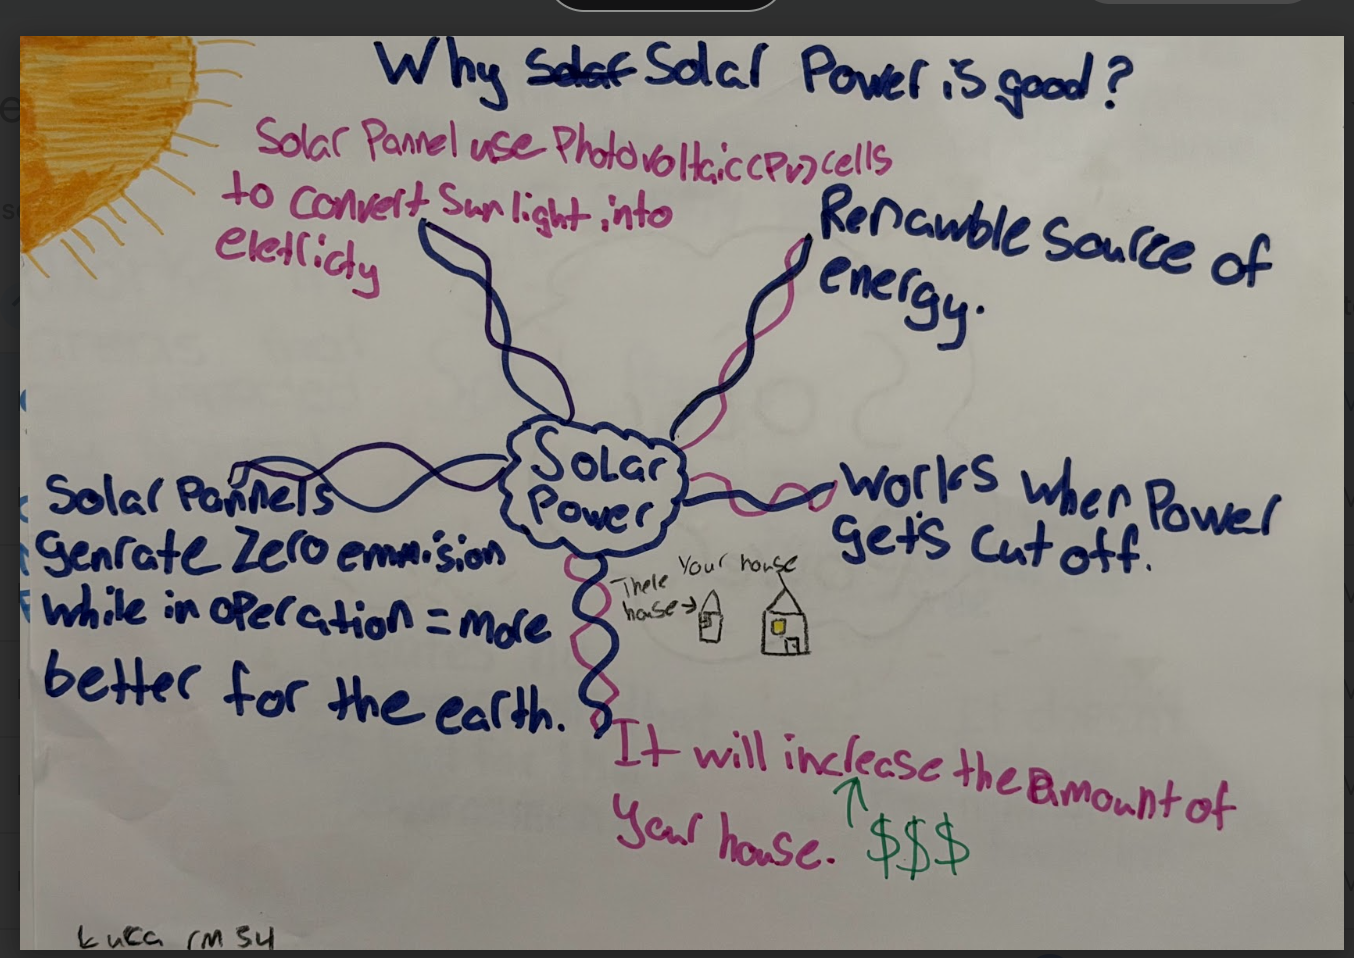 Why Solar Power is good?
Solar Pannel use Photovoltaic (PV) cells
to convert Sunlight into
eletricty
Renawble source of
energy.
Solar Power
works when Power
gets cut off.
Solar Pannels
genrate Zero emmision
while in operation = more
better for the earth.
Your house
There
house →
It will increase the amount of
your house. ↑ $$$
Luca rm 54